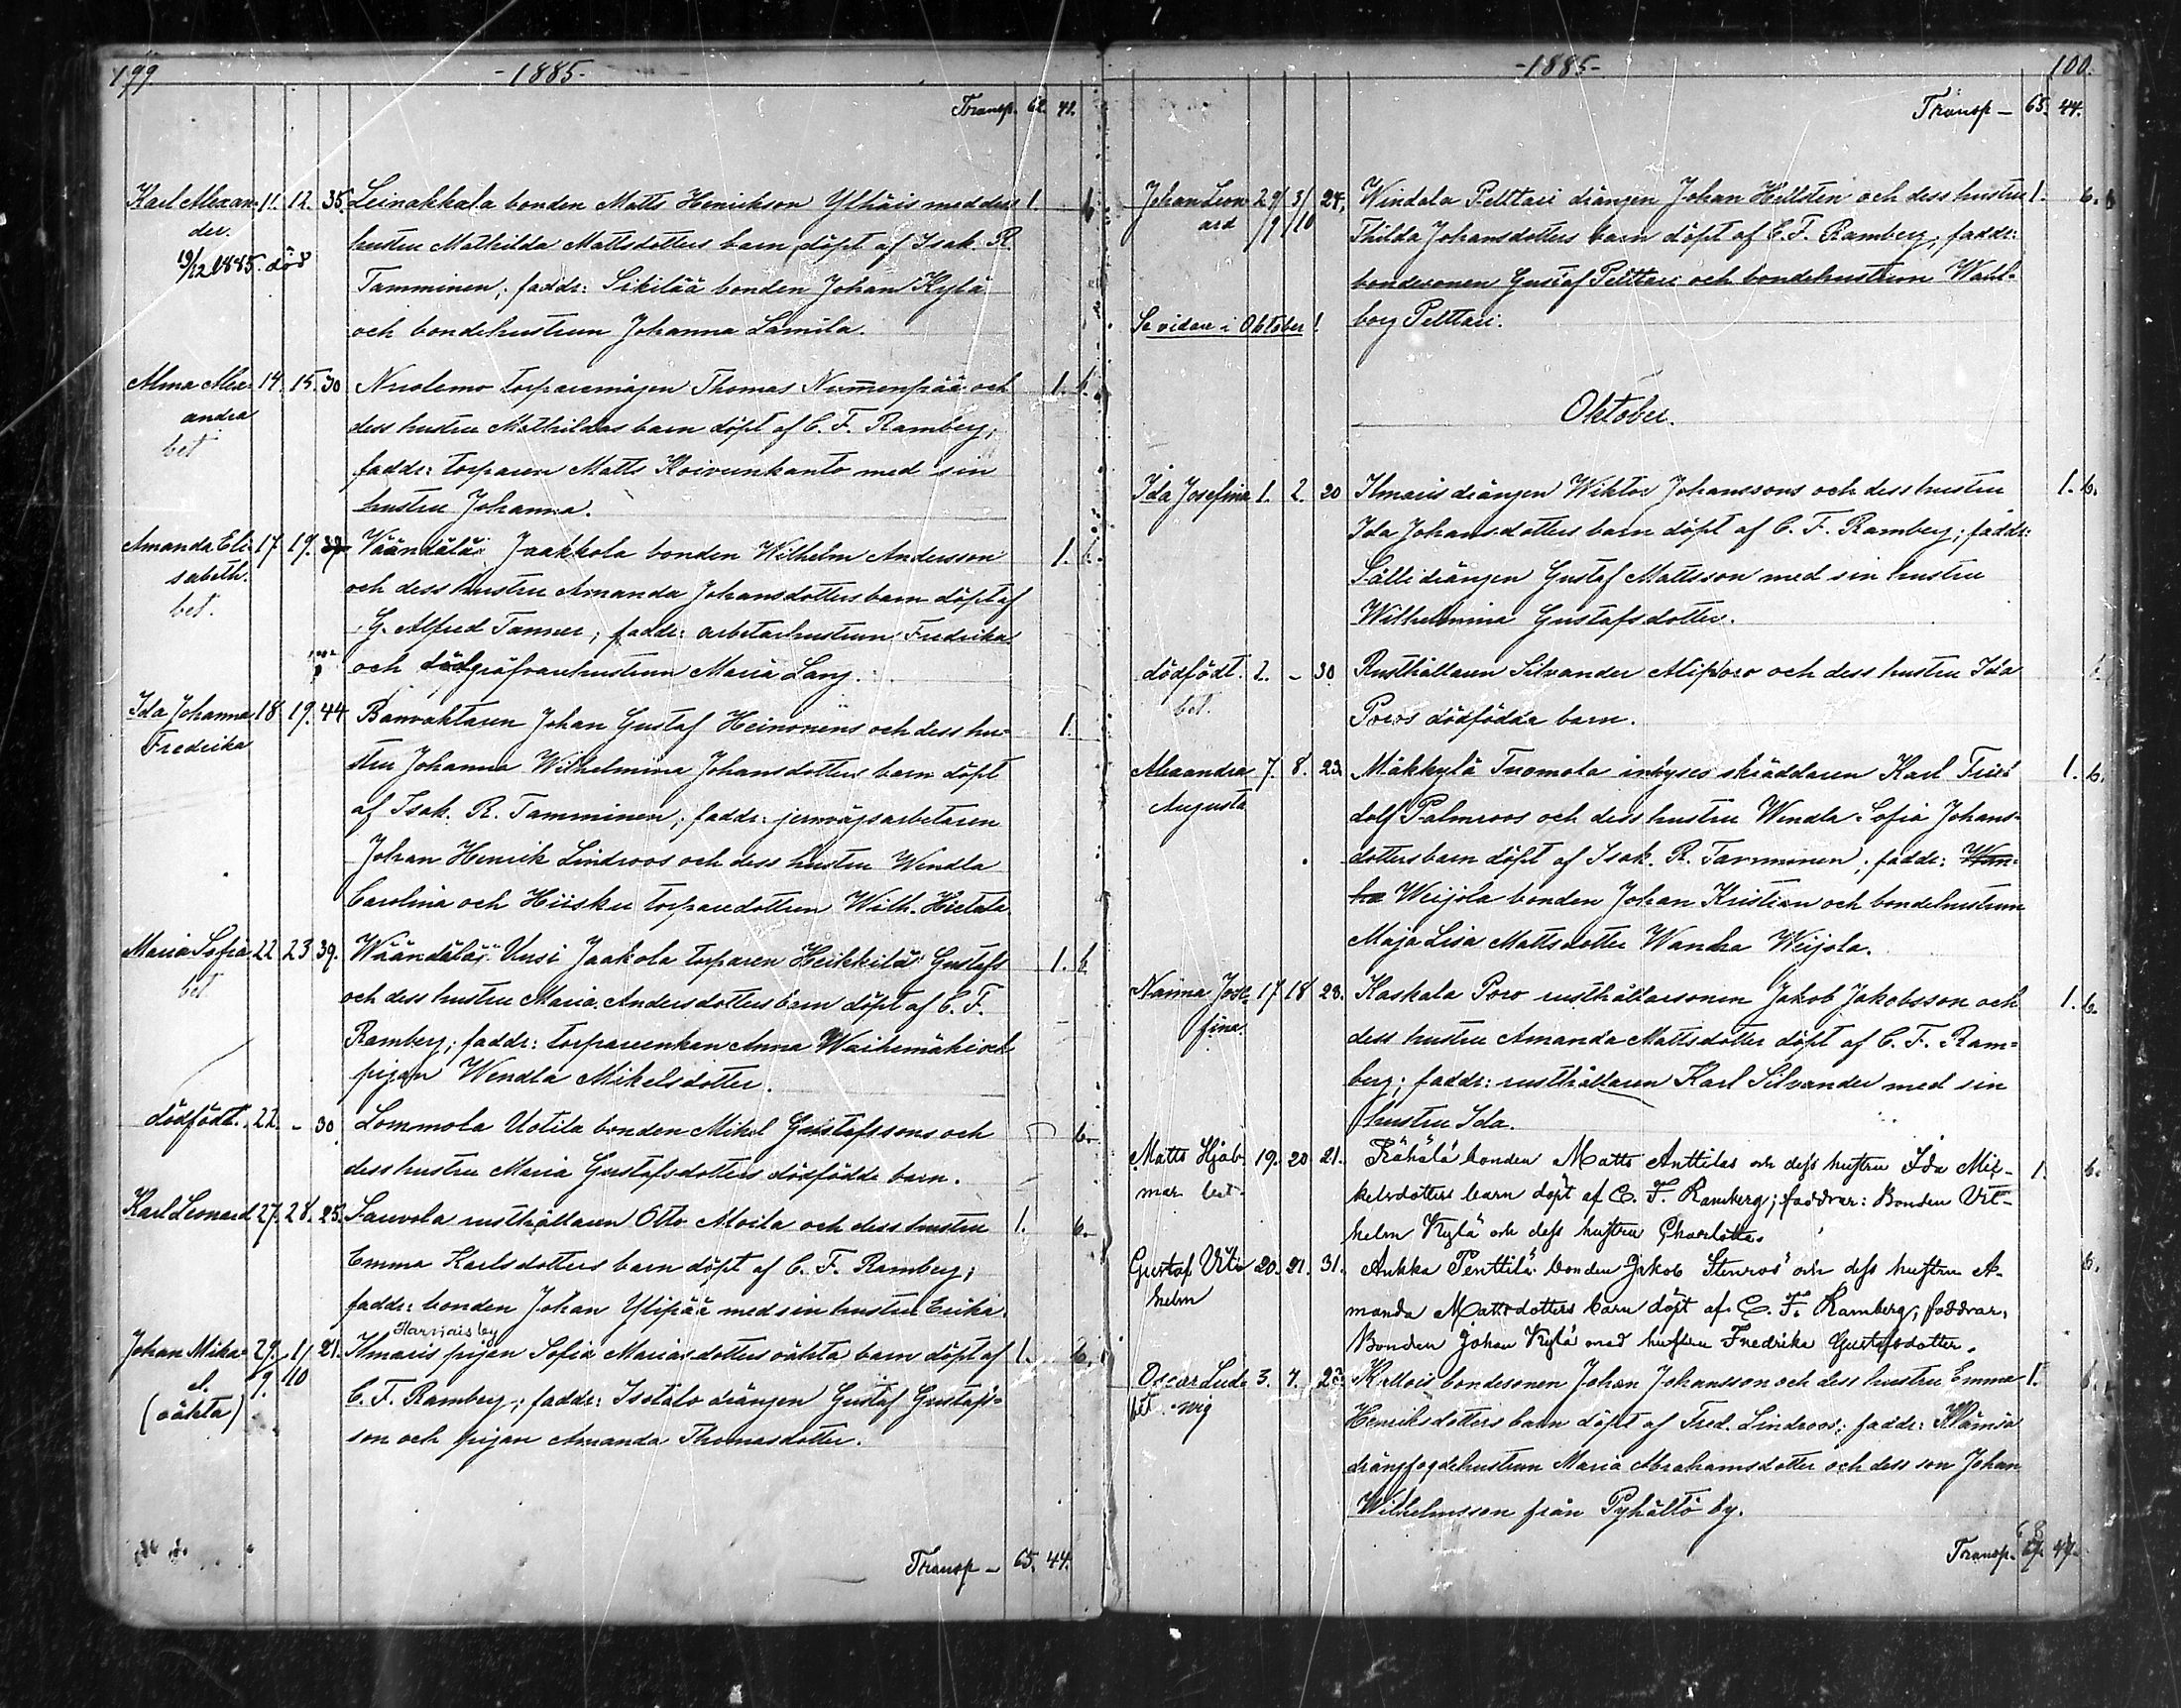 199. -1885-
Transp. 62. 42.
Karl Alexan- 11. 12. 35. Leinakkala bonden Matts Henrikson Ylhäis med dess 1. b.
der. hustru Mathilda Mattsdotters barn döpt af Isak R.
19/12 1885. död
Tamminen; faddr: Sikilää bonden Johan Kylä
och bondehustrun Johanna Lamila.
Alma Alex- 14. 15. 30 Nuolemo torparemågen Thomas Nummenpää och 1. b.
andra dess hustru Mathildas barn döpt af C. F. Ramberg;
bet faddr: torparen Matts Koivunkanto med sin
hustru Johanna.
Amanda Eli- 17 19. Väändälä Jaakkola bonden Wilhelm Andersson 1. b.
sabeth. och dess hustru Amanda Johansdotters barn döpt af
bet. G. Alfred Tanner; faddr: arbetarhustrun Fredrika
och dödgräfvarehustrun Maria Lang.
Ida Johanna 18 19. 44 Banvaktaren Johan Gustaf Heinonens och dess hu- 1.
Fredrika stru Johanna Wilhelmina Johansdotters barn döpt
af Isak. R. Tamminen; faddr: jernvägsarbetaren
Johan Henrik Lindroos och dess hustru Wendla
Carolina och Hiisku torparedottren Wilh. Hietala.
Maria Sofia 22 23 39. Wäändälä Uusi Jaakola torparen Heikkilä Gustafs 1. b.
bet och dess hustru Maria Andersdotters barn döpt af C. F.
Ramberg; faddr: torpareenkan Anna Waihemäki och
pigan Wendla Mikelsdotter.
dödfödt. 22. - 30 Lommola Uotila bonden Mikel Gustafssons och b.
dess hustru Maria Gustafsdotters dödfödde barn.
Karl Leonard 27. 28. 25. Sauvola rusthållaren Otto Moila och dess hustru 1. b.
Emma Karlsdotters barn döpt af C. F. Ramberg;
faddr: bonden Johan Ylipää med sin hustru Erika.
Harviais by
Johan Mika- 29/9. 1/10 21. Ilmaris pigan Sofia Mariasdotters oäkta barn döpt af 1. b.
el. C. F. Ramberg; faddr: Isotalo drängen Gustaf Gustafs-
(oäkta) son och pigan Amanda Thomasdotter.
Transp - 65. 44.
-1885- 100.
Transp - 65. 44.
Johan Leon- 29/9 3/10 24. Windala Pelttari drängen Johan Hellsten och dess hustru 1. b.
ard Thilda Johansdotters barn döpt af C. F. Ramberg; faddr:
bondesonen Gustaf Pelttari och bondehustrun Wall-
Se vidare i Oktober! borg Pelttari.
Oktober.
Ida Josefina 1. 2. 20 Ilmaris drängen Wiktor Johanssons och dess hustru 1. b.
Ida Johansdotters barn döpt af C. F. Ramberg; faddr:
Sälli drängen Gustaf Mattsson med sin hustru
Wilhelmina Gustafsdotter.
dödfödt. 2. - 30 Rusthållaren Silvander Aliporo och dess hustru Ida
bet. Poros dödfödda barn.
Alexandra 7. 8. 23. Mäkkylä Tuomola inhyses skräddaren Karl Fri- 1. b.
Augusta dolf Palmroos och dess hustru Wendla Sofia Johans-
dotters barn döpt af Isak. R. Tamminen; faddr: Wan-
ha Weijola bonden Johan Kristian och bondehustrun
Maja Lisa Mattsdotter Wanha Weijola.
Naima Jose- 17 18 28. Kaskala Poro rusthållarsonen Jakob Jakobsson och 1. b.
fina. dess hustru Amanda Mattsdotter döpt af C. F. Ram-
berg; faddr: rusthållaren Karl Silvander med sin
hustru Ida.
Matts Hjal- 19. 20 21. Rähälä bonden Matts Anttilas och dess hustru Ida Mik- 1. b.
mar bet. kelsdotters barn döpt af C. F. Ramberg; faddrar: Bonden Vil-
helm Kylä och dess hustru Charlotta.
Gustaf Vil- 20. 21. 31. Aukka Penttilä bonden Jakob Stenroos och dess hustru A- b.
helm manda Mattsdotters barn döpt af C. F. Ramberg; faddrar,
Bonden Johan Kylä med hustru Fredrika Gustafsdotter.
Oscar Lud- 3. 4. K Mois bondesonen Johan Johansson och dess hustru Emma 1. b.
bet. vig Henriksdotters barn döpt af Fred. Lindroos; faddr: Klämsä
drängfogdehustrun Maria Abrahamsdotter och dess son Johan
Wilhelmsson från Pyhältö by.
Transp. 68 47.